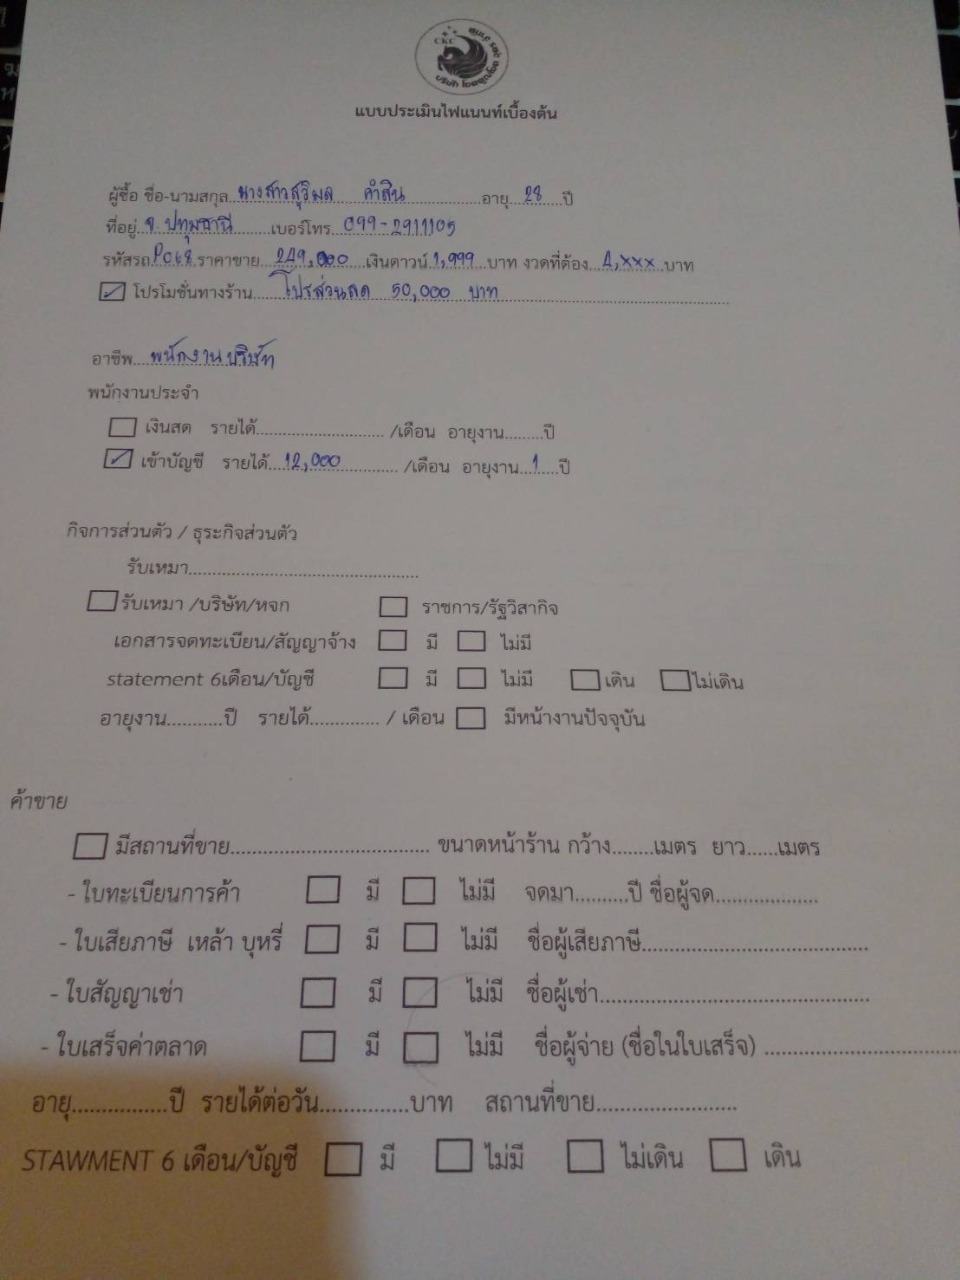 CKC
แบบประเมินไฟแนนท์เบื้องต้น
ผู้ซื้อ ชื่อ-นามสกุล นางสาวสุวิมล คำสิน อายุ 28 ปี
ที่อยู่ จ. ปทุมธานี เบอร์โทร 099-2911105
รหัสรถ P068 ราคาขาย 249,000 เงินดาวน์ 1,999 บาท งวดที่ต้อง 4,xxx บาท
โปรโมชั่นทางร้าน โปรส่วนลด 50,000 บาท
อาชีพ พนักงานบริษัท
พนักงานประจำ
เงินสด รายได้ /เดือน อายุงาน ปี
เข้าบัญชี รายได้ 12,000 /เดือน อายุงาน 1 ปี
กิจการส่วนตัว / ธุระกิจส่วนตัว
รับเหมา
รับเหมา /บริษัท/หจก ราชการ/รัฐวิสากิจ
เอกสารจดทะเบียน/สัญญาจ้าง มี ไม่มี
statement 6เดือน/บัญชี มี ไม่มี เดิน ไม่เดิน
อายุงาน ปี รายได้ / เดือน มีหน้างานปัจจุบัน
ค้าขาย
มีสถานที่ขาย ขนาดหน้าร้าน กว้าง เมตร ยาว เมตร
- ใบทะเบียนการค้า มี ไม่มี จดมา ปี ชื่อผู้จด
- ใบเสียภาษี เหล้า บุหรี่ มี ไม่มี ชื่อผู้เสียภาษี
- ใบสัญญาเช่า มี ไม่มี ชื่อผู้เช่า
- ใบเสร็จค่าตลาด มี ไม่มี ชื่อผู้จ่าย (ชื่อในใบเสร็จ)
อายุ ปี รายได้ต่อวัน บาท สถานที่ขาย
STAWMENT 6 เดือน/บัญชี มี ไม่มี ไม่เดิน เดิน